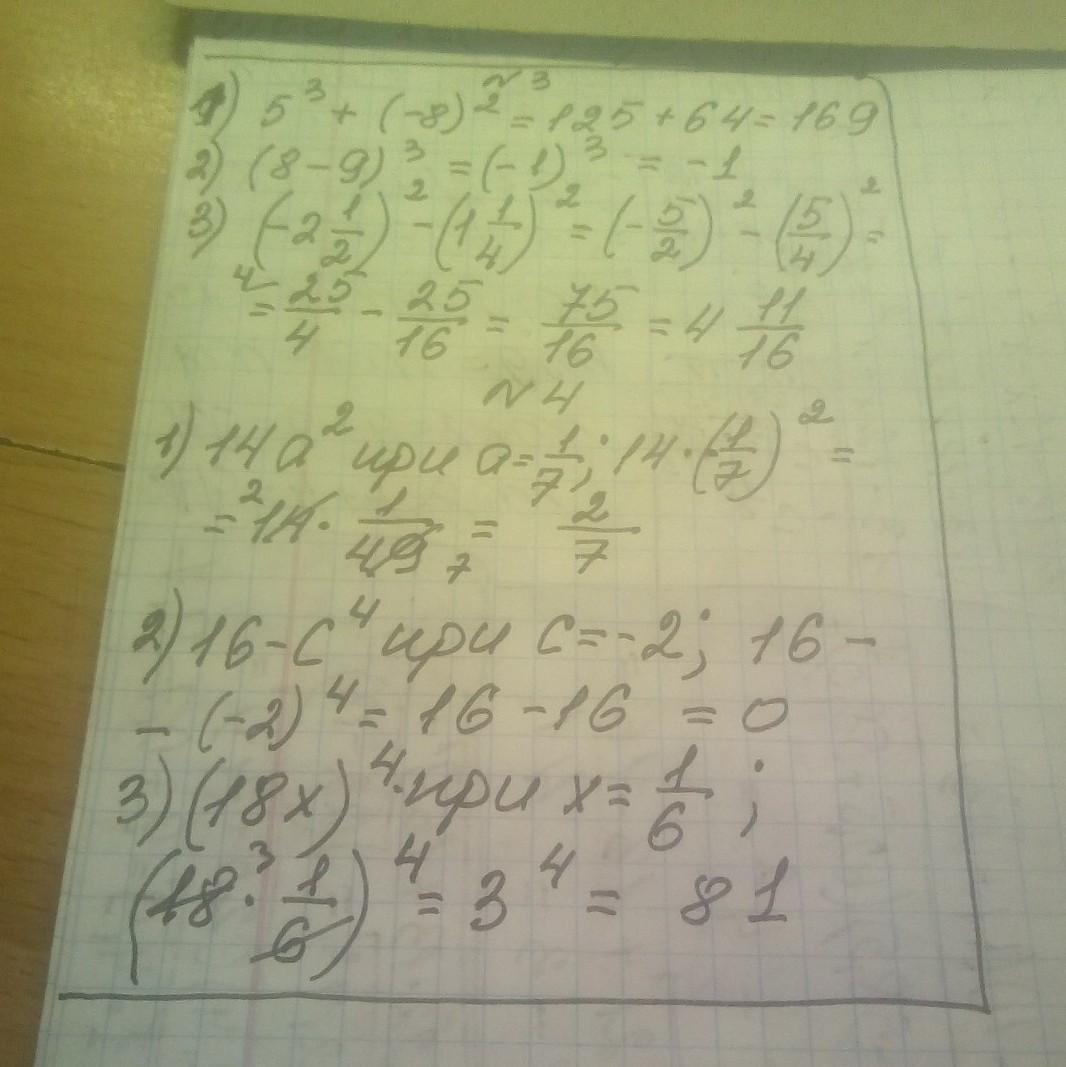 №3
1) 5³ + (-8)² = 125 + 64 = 169
2) (8 - 9)³ = (-1)³ = -1
3) (-2 1/2)² - (1 1/4)² = (-5/2)² - (5/4)² =
4 = 25/4 - 25/16 = 75/16 = 4 11/16
№4
1) 14a² при a = 1/7; 14 · (1/7)² =
= ²14 · 1/49 7 = 2/7
2) 16 - c⁴ при c = -2; 16 -
- (-2)⁴ = 16 - 16 = 0
3) (18x)⁴ при x = 1/6;
(18³ · 1/6)⁴ = 3⁴ = 81